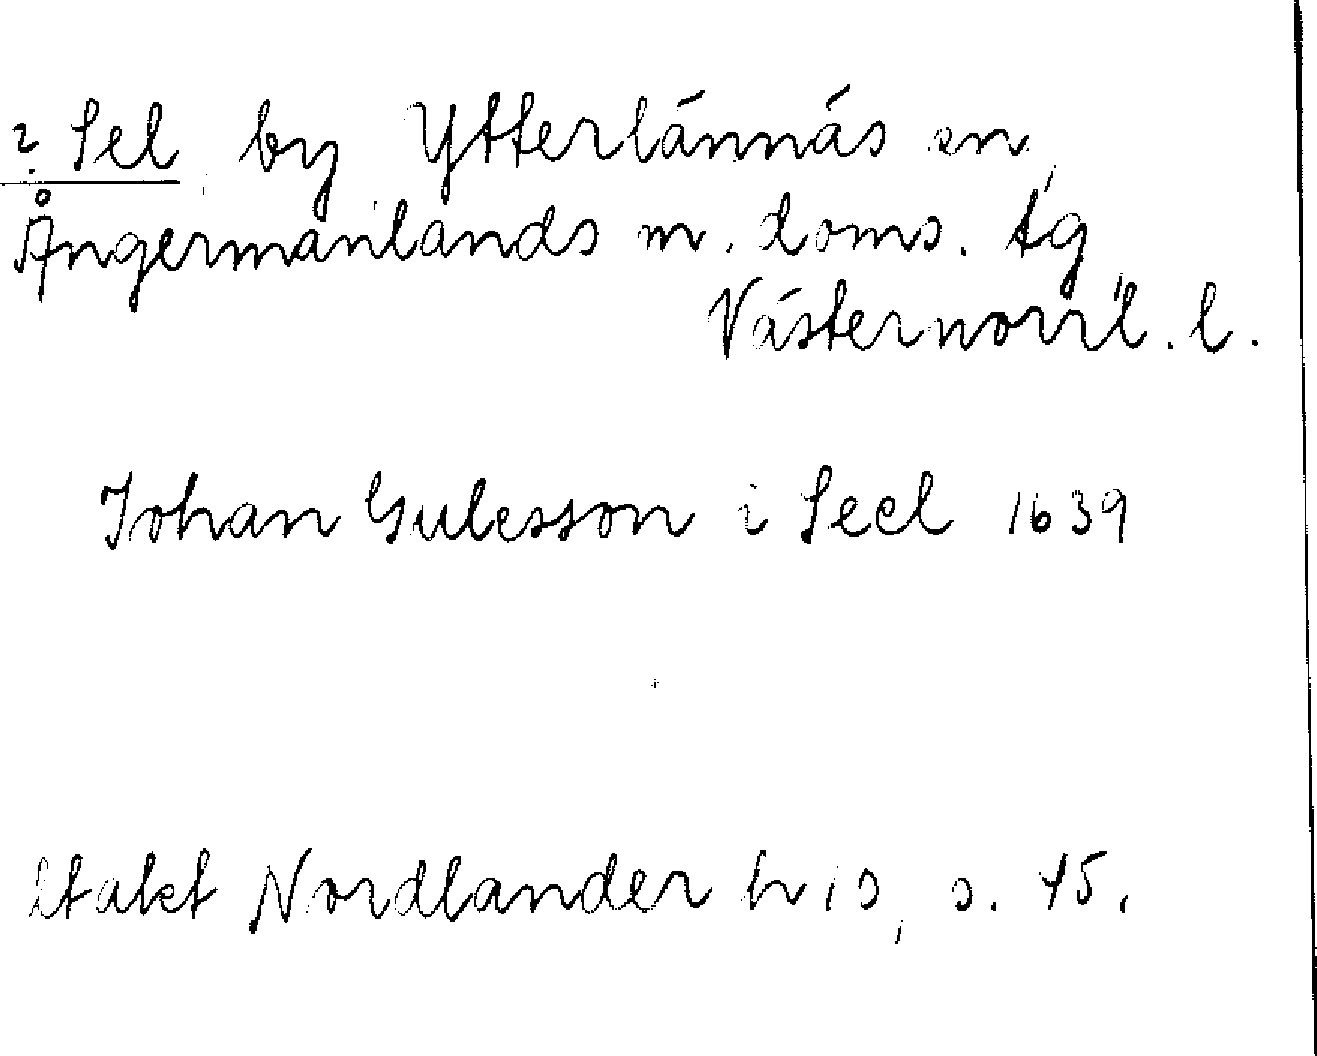 ? Sel by Ytterlännäs sn,
Ångermanlands m. doms. tg
Västernorrl. l.
Johan Gulesson i Seel 1639
Nordlander h s. 45.